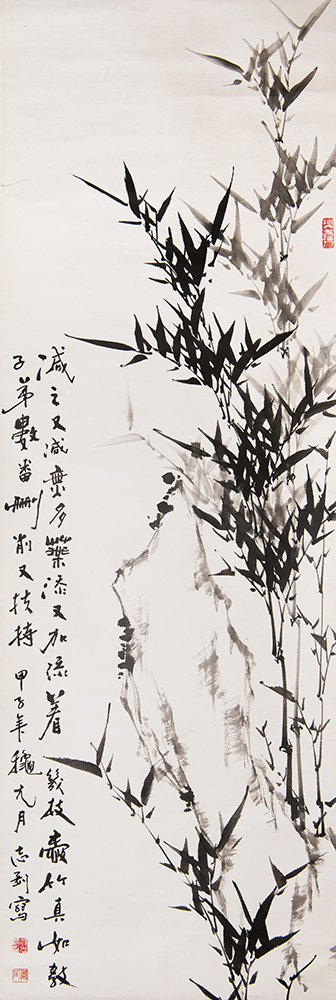 減之又減無多葉添又加添着幾枝愛竹真如教
子弟數番刪削又扶持 甲子年龝九月志剛寫